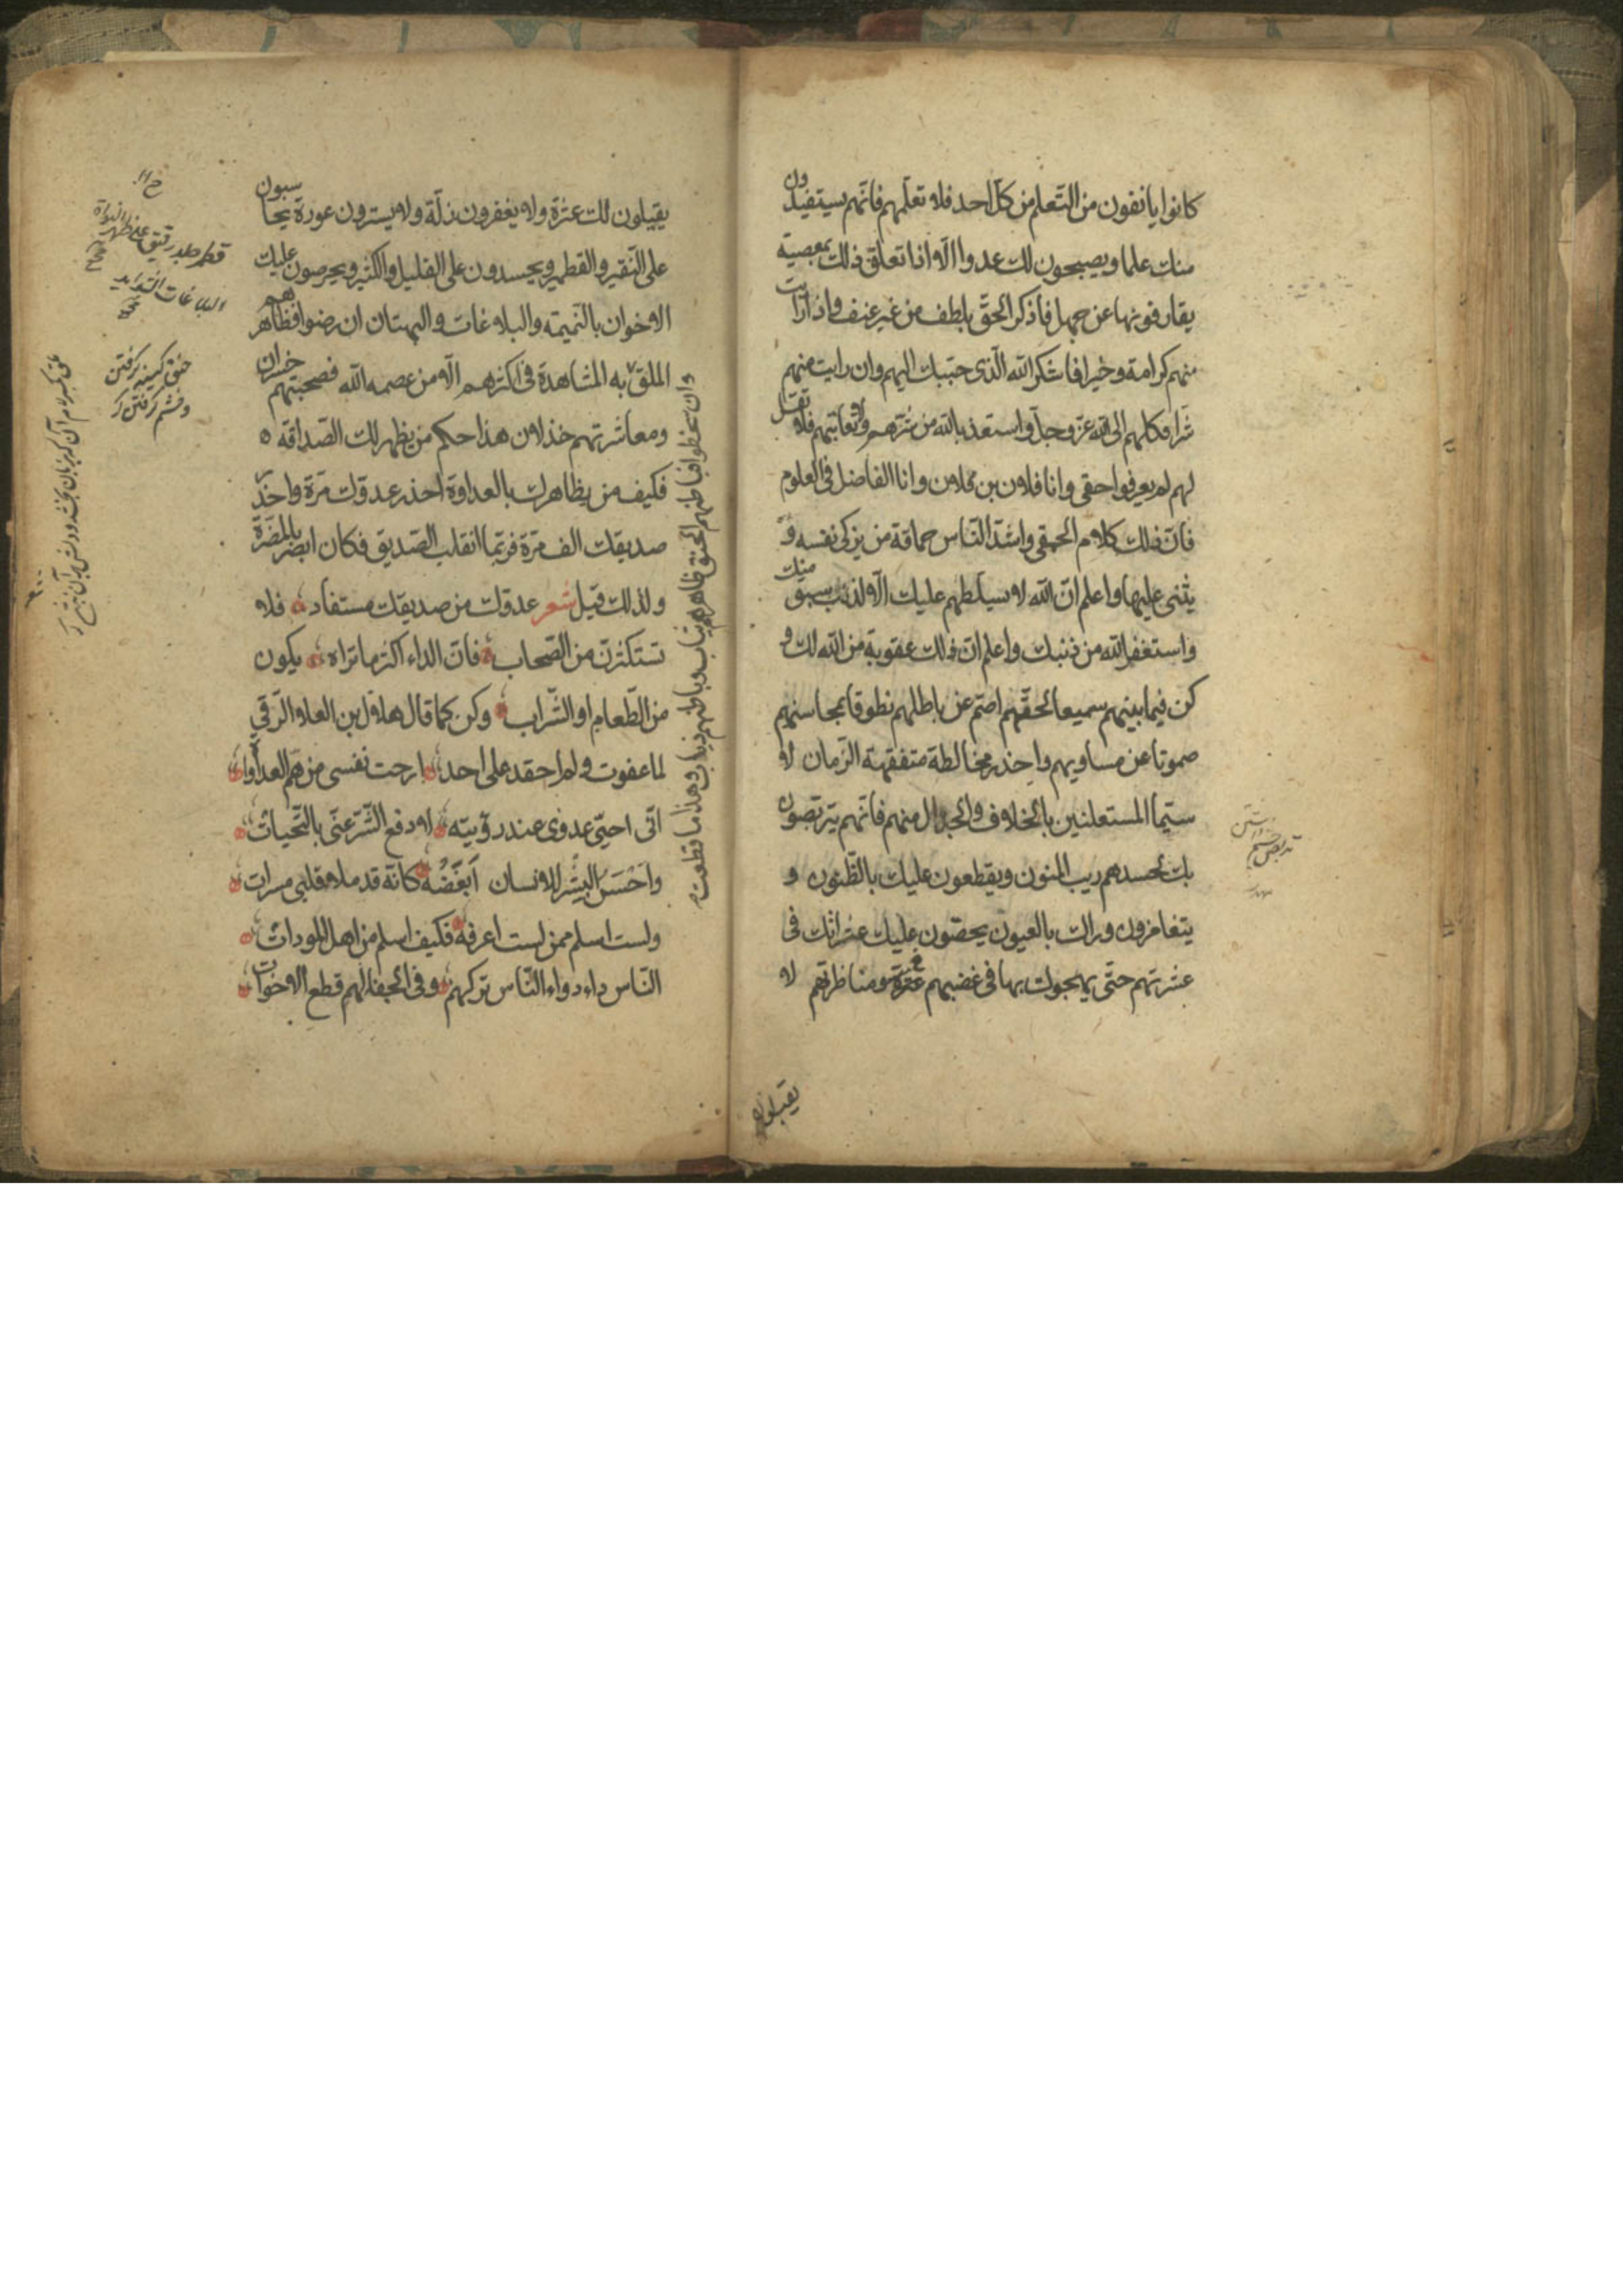 كانوا يانفون من التعلم من كل احد فلا تعلمهم فانهم يستفيدون
منك علما ويصبحون لك عدوا الا اذا تعلق ذلك بمعصية
يقارفونها عن جهل فاذكر الحق بلطف من غير عنف واذا رايت
منهم كرامة وخيرا فاشكر الله الذى حببك اليهم وان رايت منهم
شرا فكلهم الى الله عز وجل واستعذ بالله من شرهم ولا تعاتبهم فلا تقل
لهم لم يعرفوا حقى وانا فلان بن فلان وانا الفاضل فى العلوم
فان ذلك كلام الحمقى واشد الناس حماقة من يزكى نفسه و
يثنى عليها واعلم ان الله لا يسلطهم عليك الا لذنب سبق منك
واستغفر الله من ذنبك واعلم ان ذلك عقوبة من الله لك و
كن فيما بينهم سميعا لحقهم اصم عن باطلهم نطوقا بمحاسنهم
صموتا عن مساويهم واحذر مخالطة متفقهة الزمان لا
سيما المستعلنين بالخلاف والجدال منهم فانهم يتربصون
بك لحسدهم ريب المنون ويقطعون عليك بالظنون و
يتغامزون وراك بالعيون يحصون عليك عثراتك فى
عشرتهم حتى يهجوك بها فى غضبهم ومناظرتهم لا
يقبلون
يقيلون لك عثرة ولا يغفرون زلة ولا يسترون عورة يحاسبون
على النقير والقطمير ويحسدون على القليل والكثير ويحرصون عليك
الاخوان بالنميمة والبلاغات والبهتان ان رضوا فظاهرهم
الملق به المشاهدة فى اكثرهم الا من عصمه الله فصحبتهم خسران
ومعاشرتهم خذلان هذا حكم من يظهر لك الصداقه
فكيف من يظاهرك بالعداوة احذر عدوك مرة واحذر
صديقك الف مرة فربما انقلب الصديق فكان ابصر بالمضرة
ولذلك قيل شعر عدوك من صديقك مستفاد فلا
تستكثرن من الصحاب فان الداء اكثر ما تراه يكون
من الطعام او الشراب وكن كما قال هلال بن العلا الرقى
لما عفوت ولم احقد على احد ارحت نفسى من هم العداوات
انى احيى عدوى عند رؤيته لا دفع الشر عنى بالتحيات
واحسن البشر للانسان ابغضه كانه قد ملا قلبى مسرات
ولست اسلم ممن لست اعرفه فكيف اسلم من اهل المودات
الناس داء دواء الناس تركهم وفى الجفا لهم قطع الاخوات
وان سخطوا فباطنهم الحنق ظاهرهم ثياب وباطنهم ذياب وهذا ما قطعت
حنق كينه گرفتن
وخشم گرفتن